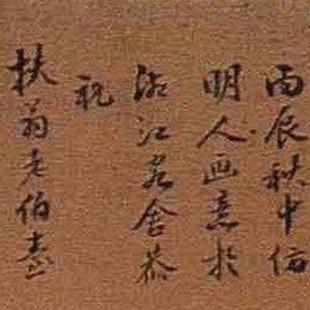 丙辰秋中仿
明人画意於
江客舍恭
祝
扶翁老伯